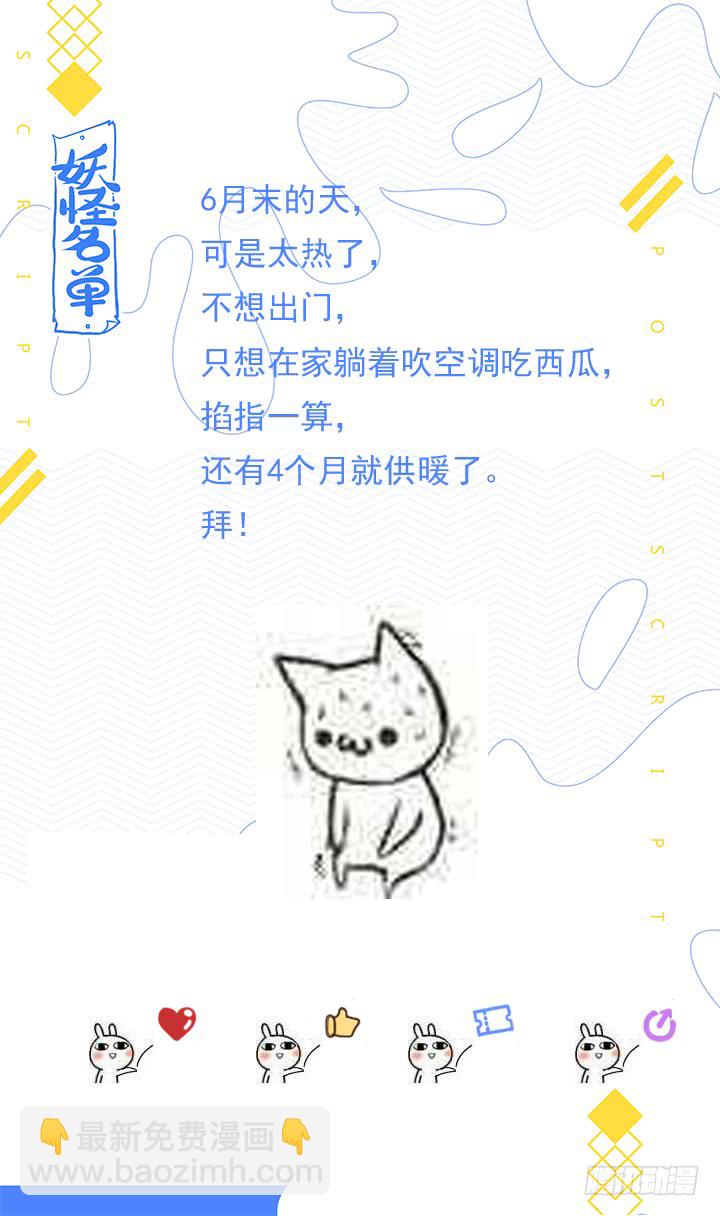 SCRIPT
妖怪名单
6月末的天，
可是太热了，
不想出门，
只想在家躺着吹空调吃西瓜，
掐指一算，
还有4个月就供暖了。
拜！
POSTSCRIPT
最新免费漫画
www.baozimh.com
腾讯动漫